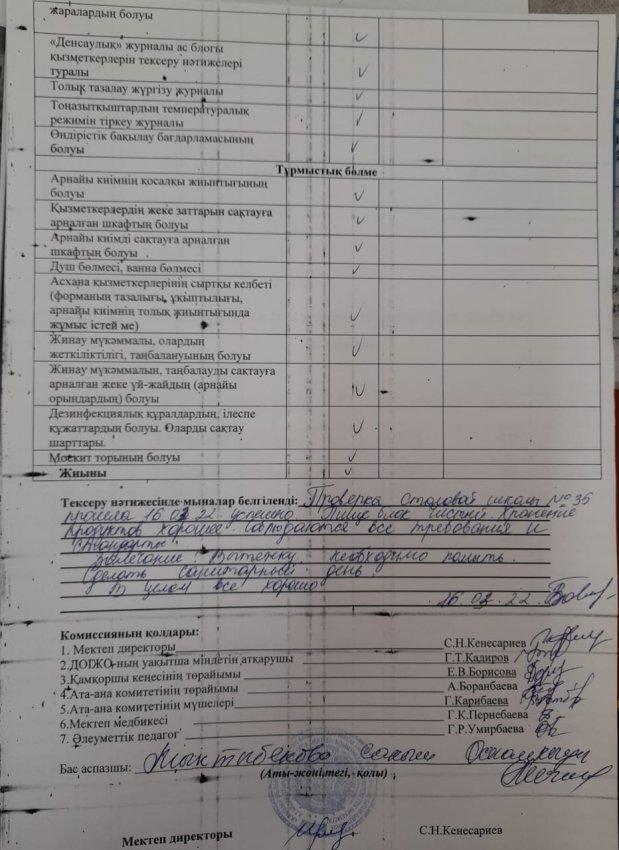 жаралардың болуы
«Денсаулық» журналы ас блогы
қызметкерлерін тексеру нәтижелері
туралы
Толық тазалау жүргізу журналы
Тоңазытқыштардың температуралық
режимін тіркеу журналы
Өндірістік бақылау бағдарламасының
болуы
Тұрмыстық бөлме
Арнайы киімнің қосалқы жиынтығының
болуы
Қызметкерлердің жеке заттарын сақтауға
арналған шкафтың болуы
Арнайы киімді сақтауға арналған
шкафтың болуы
Душ бөлмесі, ванна бөлмесі
Асхана қызметкерлерінің сыртқы келбеті
(форманың тазалығы, ұқыптылығы,
арнайы киімнің толық жиынтығында
жұмыс істей ме)
Жинау мүкәммалы, олардың
жеткіліктілігі, таңбалануының болуы
Жинау мүкәммалын, таңбалауды сақтауға
арналған жеке үй-жайдың (арнайы
орындардың) болуы
Дезинфекциялық құралдардың, ілеспе
құжаттардың болуы. Оларды сақтау
шарттары.
Москит торының болуы
Жиыны
Тексеру нәтижесінде мыналар белгіленді: Проверка столовой школы № 36
прошла 16 03 22 успешно Пище блок чистый. Хранение
продуктов хорошее соблюдаются все требования и
стандарты
Замечание Вытяжку необходимо помыть.
Сделать санитарный день
В целом все хорошо
16.03.22
Комиссияның қолдары:
1. Мектеп директоры С.Н.Кенесариев
2.ДОІЖО-ның уақытша міндетін атқарушы Г.Т.Кадиров
3.Қамқоршы кеңесінің төрайымы Е.В.Борисова
4.Ата-ана комитетінің төрайымы А.Боранбаева
5.Ата-ана комитетінің мүшелері Г.Карибаева
6.Мектеп медбикесі Г.К.Пернебаева
7. Әлеуметтік педагог Г.Р.Умирбаева
Бас аспазшы:
(Аты-жөні,тегі, қолы)
Мектеп директоры С.Н.Кенесариев